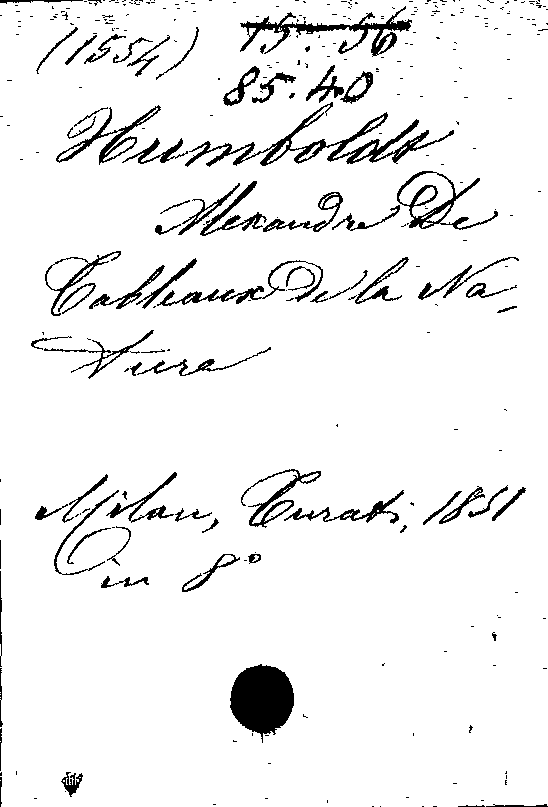 (1554) 15. 56
85. 40
Humboldt
Alexandre De
Tableaux de la Na-
ture
Milan, Turati, 1851
in 8°